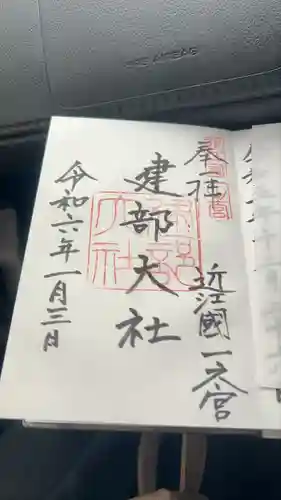 奉拝
近江國一之宮
建部大社
令和六年一月三日
SRS AIRBAG